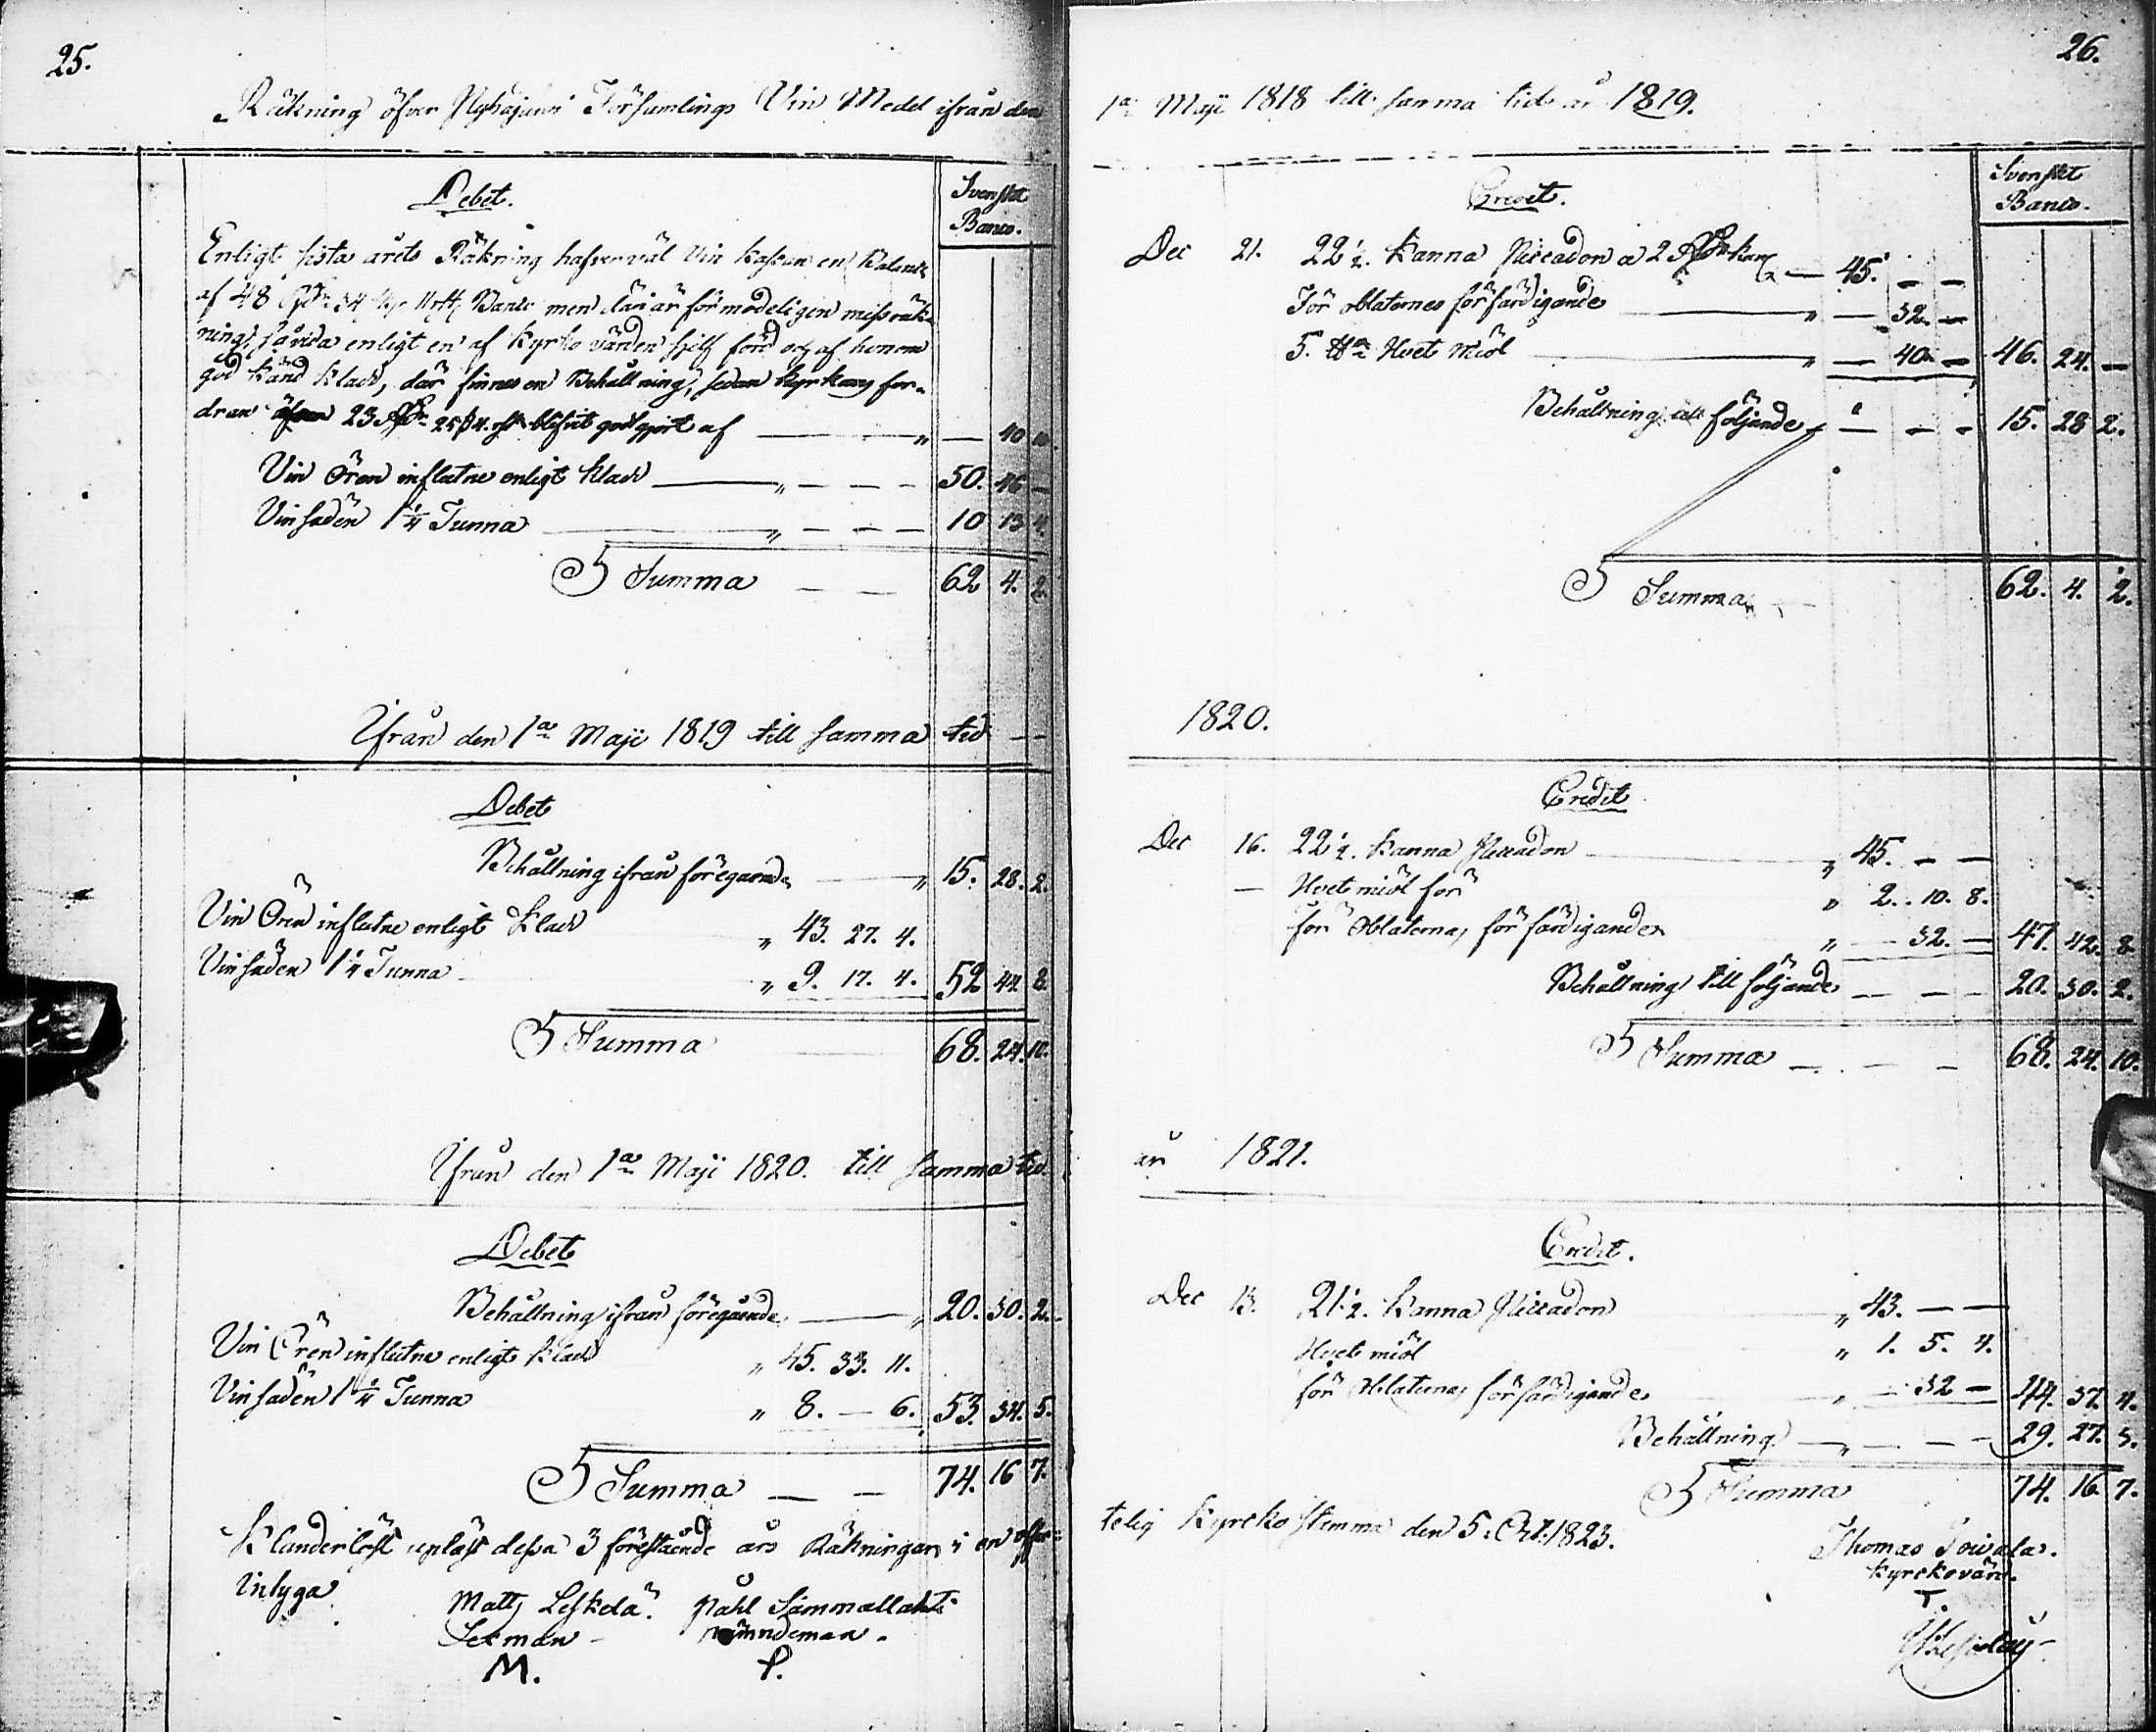 25.
Räkning öfver Nykyrka Församlings Vin Medel ifrån den
Debet.
Svenskt
Banco.
Enligt sista årets Räkning hafver väl Vin Kassan en Balance
af 48 Rdr 34 Banco men län är för modeligen missräk-
ning, såvida enligt en af Kyrko värden sjelf förd och af honom
god känd klad, där finnes en Behållning, sedan Kyrkans for-
dran 23 Rdr 25 ß 4 blifvit godgjort af — — 40 10
Vin Ören influtne enligt klad — — — 50. 46 —
Vinsäden 1 1/4 Tunna — — — 10 13 4.
Summa — — 62 4. 2.
Ifrån den 1a Maji 1819 till samma tid
Debet
Behållning ifrån föregånde — 15. 28. 2.
Vin Ören influtne enligt klad „ 43. 27. 4.
Vinsäden 1 1/4 Tunna „ 9. 17. 4. 52 44. 8.
Summa 68. 24. 10.
Ifrån den 1a Maji 1820. till samma tid
Debet
Behållning ifrån föregående — 20. 30. 2.
Vin Ören influtne enligt klad „ 45. 33. 11.
Vinsäden 1 1/4 Tunna „ 8. — 6. 53. 34. 5.
Summa — — 74. 16 7.
Klanderlöst upläst dessa 3 förestående års Räkningar i en offen=
intyga
Matts Leskelä. Påhl Sammallahti
Sexman nämndeman.
M. P.
26.
1a Maji 1818 till samma tid år 1819.
Credit.
Svenskt
Banco.
Dec 21. 22 1/2. Kanna Piccadon a 2 Rdr kan — 45. — —
För oblaternes förfärdigande — „ — 32. —
5. Hvet Miöl — „ — 40 — 46. 24. —
Behållning till följande — — — 15. 28 2.
Summa 62. 4. 2.
1820.
Credit
Dec 16. 22 1/2. Kanna Piccadon „ 45. — —
— Hvetmiöl för „ 2. 10. 8.
för Oblaternas förfärdigande „ — 32. — 47. 42. 8
Behållning till följande — — — 20. 30. 2.
Summa — — — 68. 24. 10.
år 1821.
Credit.
Dec 13. 21 1/2. Kanna Piccadon „ 43. — —
Hvetmiöl „ 1. 5. 4.
för Oblaternas förfärdigande „ — 32 — 44. 37. 4.
Behållning — „ — — — 29. 27. 3.
Summa 74. 16 7.
telig Kyrcko stemma den 5. Oct. 1823.
Thomas Toivala.
Kyrckovärd.
T.